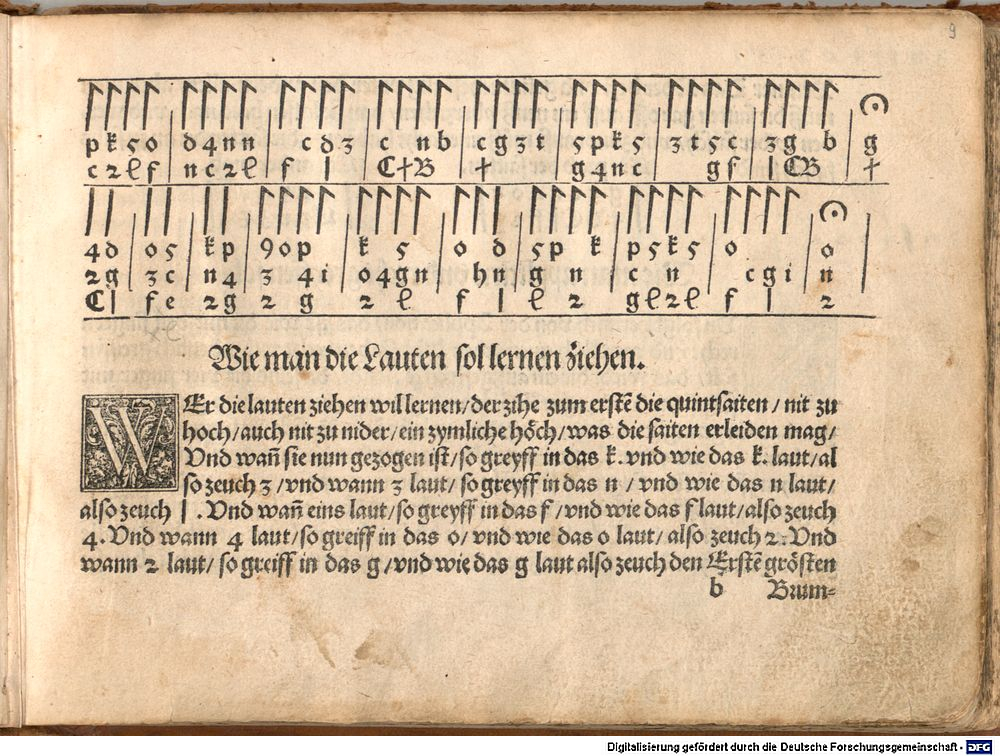 9
p k 5 o d 4 n n c d 3 c n b c g 3 t 5 p k 5 3 t 5 c 3 g b g
c 2 l f n c 2 l f 1 C † B † g 4 n c g f 1 C B †
4 d o 5 k p 9 o p k 5 o d 5 p k p 5 k 5 o o
2 g 3 c n 4 3 4 i o 4 g n h n g n c n c g i n
C 1 f e 2 g 2 g 2 l f 1 l 2 g l 2 l f 1 2
Wie man die Lauten sol lernen ziehen.
WEr die lauten ziehen wil lernen/ der zihe zum erstē die quintsaiten / nit zu
hoch/ auch nit zu nider/ ein zymliche höch/ was die saiten erleiden mag/
Vnd wañ sie nun gezogen ist/ so greyff in das k. vnd wie das k. laut/ al
so zeuch 3 / vnd wann 3 laut/ so greyff in das n / vnd wie das n laut/
also zeuch 1 . Vnd wañ eins laut/ so greyff in das f/ vnd wie das f laut/ also zeuch
4. Vnd wann 4 laut/ so greiff in das o/ vnd wie das o laut/ also zeuch 2. Vnd
wann 2 laut/ so greiff in das g/ vnd wie das g laut also zeuch den Erstē grösten
b Brum=
Digitalisierung gefördert durch die Deutsche Forschungsgemeinschaft - DFG